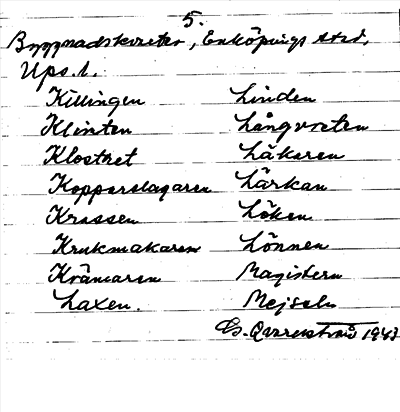 5.
Byggnadskvarter, Enköpings stad,
Upps. l.
Killingen Linden
Klinten Långvreten
Klostret Läkaren
Kopparslagaren Lärkan
Krassen Löken
Krukmakaren Lönnen
Krämaren Magistern
Laxen. Mejseln
1943